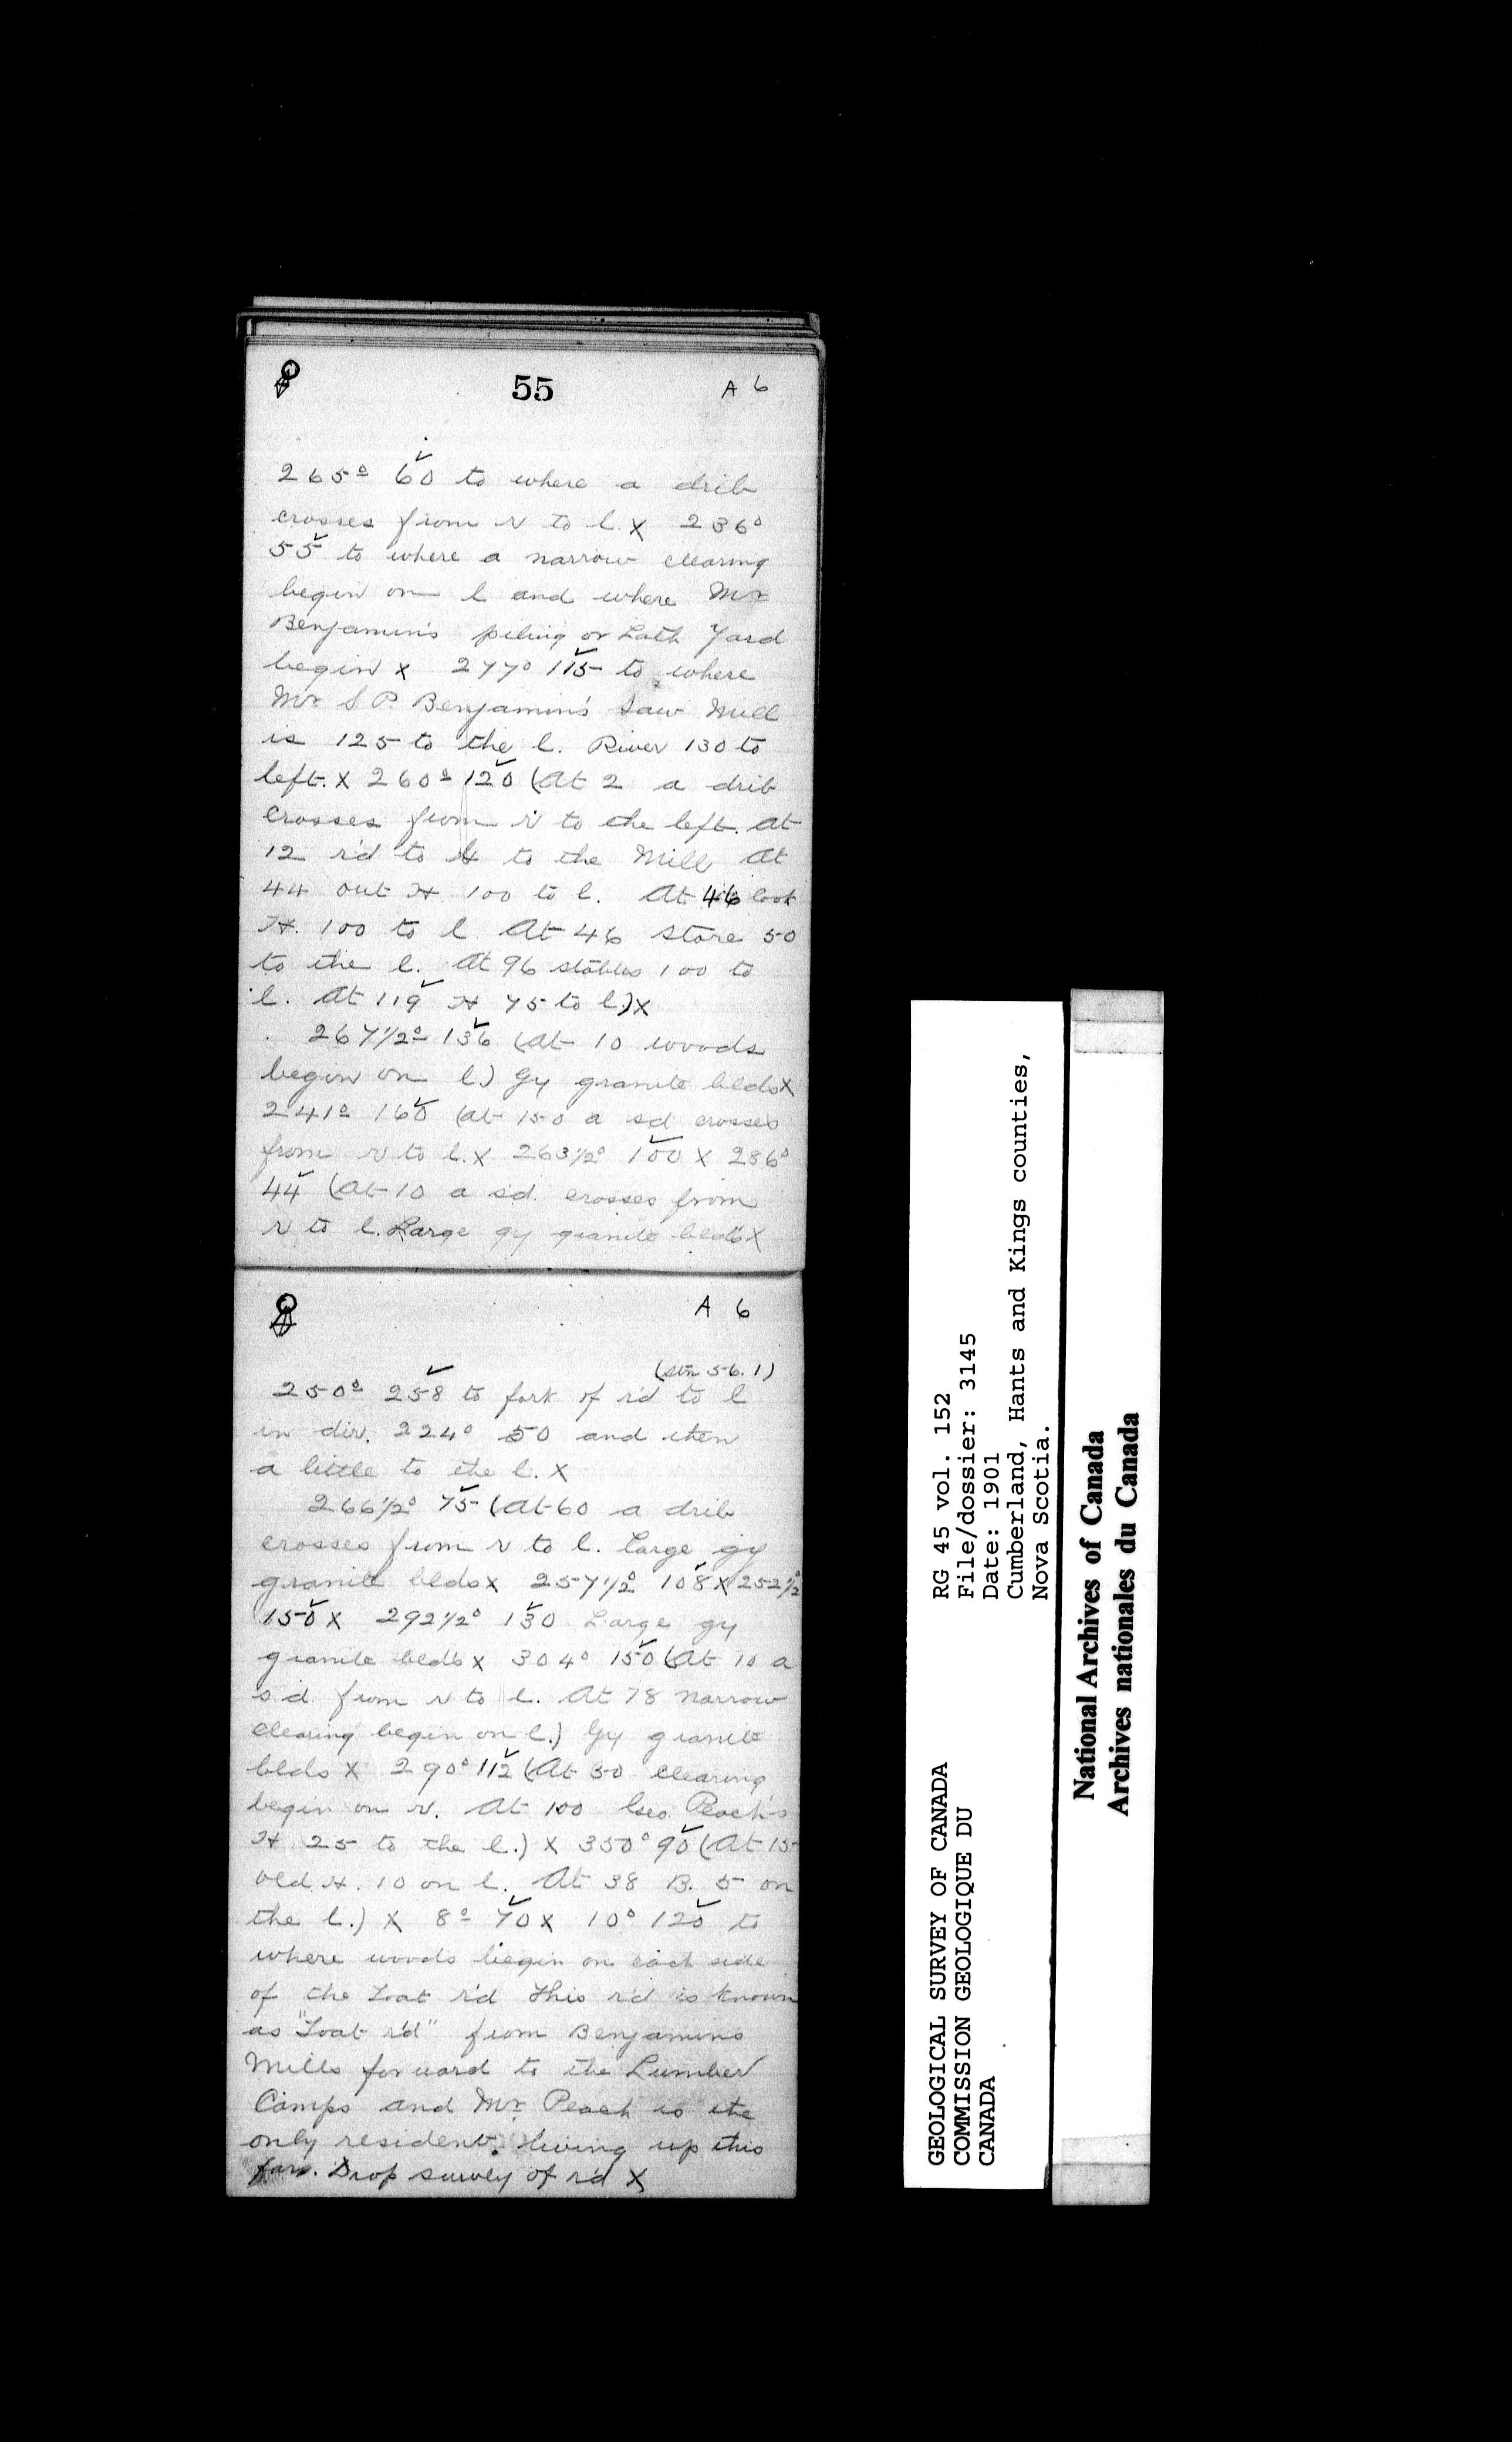 55
A 6
265° 60 to where a drib
crosses from r to l. X 236°
55 to where a narrow clearing
begin on l and where Mr
Benjamin's piling or Lath Yard
begin X 277° 115 to where
Mr S P Benjamin's Saw Mill
is 125 to the l. River 130 to
left. X 260° 120 (At 2 a drib
crosses from r to the left. At
12 r'd to to the Mill At
44 out H 100 to l. At 46 cook
H. 100 to l At 46 store 50
to the l. At 96 stables 100 to
l. At 119 H 75 to l.) X
267 1/2° 136 (At 10 woods
begin on l.) Gy granite blds X
241° 160 (at 150 a sd crosses
from r to l. X 263 1/2° 100 X 286°
44 (At 10 a sd. crosses from
r to l. Large gy granite bld's X
A 6
(stn 56.1)
250° 258 to fork of r'd to l
in dir. 224° 50 and then
a little to the l. X
266 1/2° 75 (At 60 a drib
crosses from r to l. Large gy
granite blds X 257 1/2° 108 X 252 1/2°
150 X 292 1/2° 130 Large gy
granite bld's X 304° 150 (At 10 a
s'd from r to l. At 78 narrow
clearing begin on l.) Gy granite
blds X 290° 112 (At 50 clearing
begin on r. At 100 Geo. Peach's
H 25 to the l.) X 350° 90 (At 15
old H. 10 on l. At 38 B. 5 on
the l.) X 8° 70 X 10° 120 to
where woods begin on each side
of the Loat r'd This r'd is known
as "Loat r'd" from Benjamins
Mills forward to the Lumber
Camps and Mr. Peach is the
only resident living up this
far. Drop survey of r'd X
GEOLOGICAL SURVEY OF CANADA
COMMISSION GEOLOGIQUE DU
CANADA
RG 45 vol. 152
File/dossier: 3145
Date: 1901
Cumberland, Hants and Kings counties,
Nova Scotia.
National Archives of Canada
Archives nationales du Canada